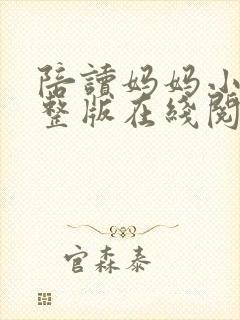 陪讀妈妈小
整版在綫閱
官森泰